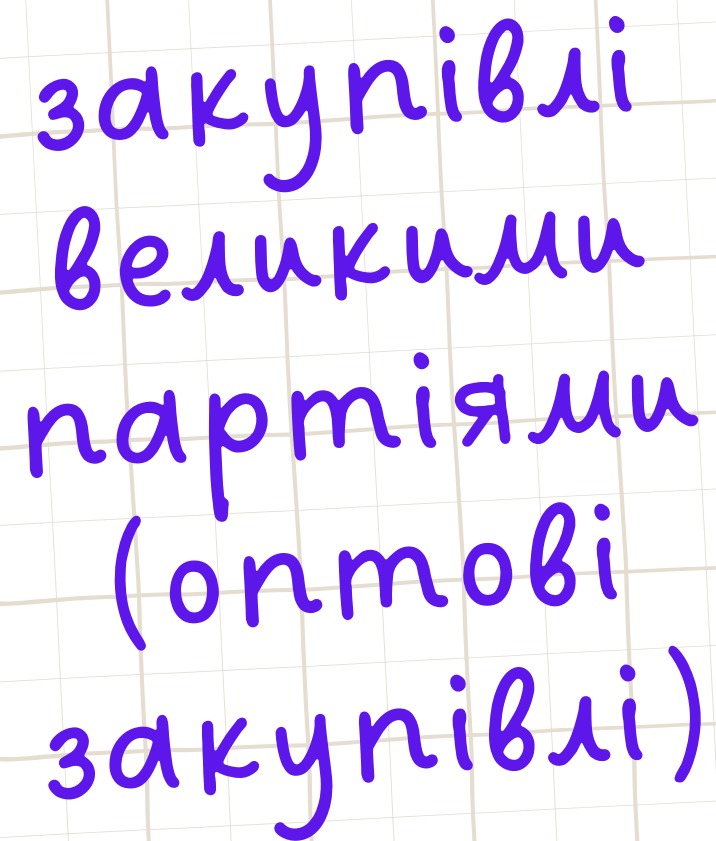 закупівлі
великими
партіями
(оптові
закупівлі)